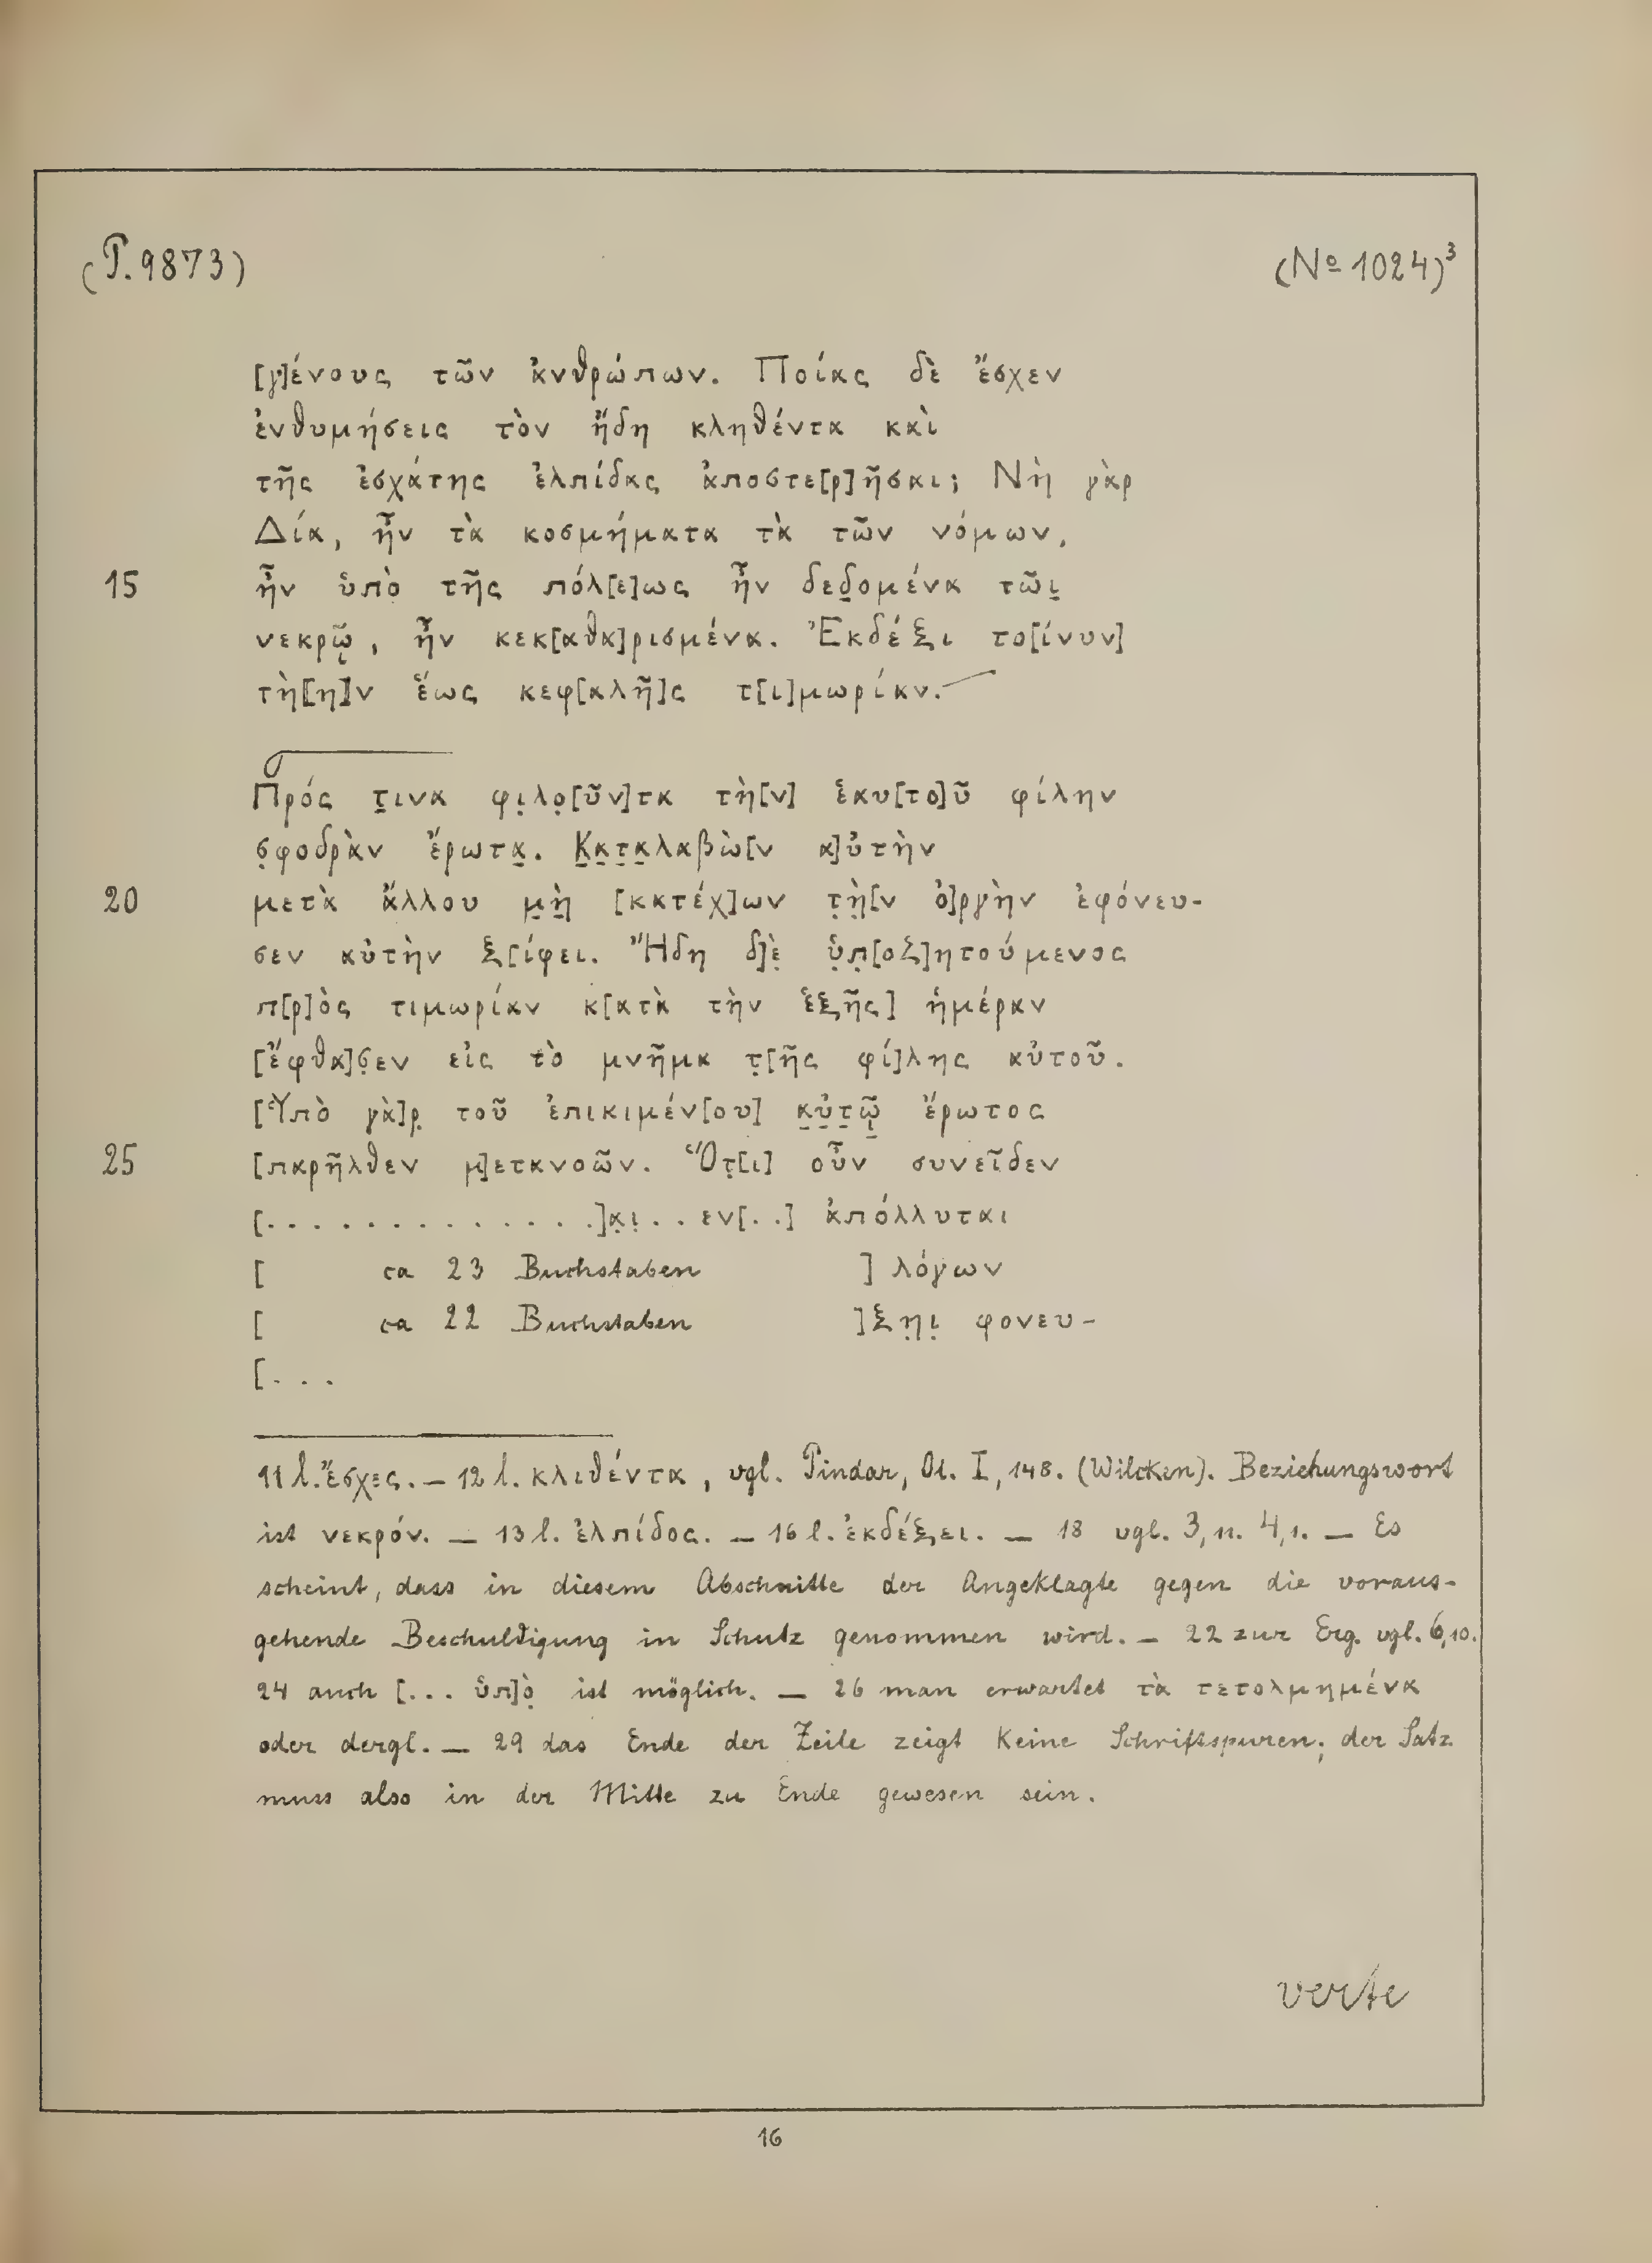 (P. 9873)
(No 1024)³
[γ]ένους τῶν ἀνθρώπων. Ποίας δὲ ἔσχεν
ἐνθυμήσεις τὸν ἤδη κληθέντα καὶ
τῆς ἐσχάτης ἐλπίδας ἀποστε[ρ]ῆσαι; Νὴ γὰρ
Δία, ἦν τὰ κοσμήματα τὰ τῶν νόμων,
15 ἦν ὑπὸ τῆς πόλ[ε]ως ἦν δεδ̣ομένα τῶι̣
νεκρῷ̣, ἦν κεκ[αθα]ρισμένα. Ἐκδέξι το[ίνυν]
τὴ[η]ν ἕως κεφ[αλῆ]ς τ[ι]μωρίαν.
Πρός τ̣ινα φι̣λο̣[ῦν]τα τὴ[ν] ἑαυ[το]ῦ φίλην
σ̣φοδρὰν ἔρωτα̣. Κ̣α̣τ̣α̣λαβὼ[ν α]ὐτὴν
20 μετὰ ἄλλου μ̣ὴ̣ [κατέχ]ων τ̣ὴ̣[ν ὀ]ργὴν ἐφόνευ-
σεν αὐτὴν ξ[ίφει. Ἤδη δ]ὲ̣ ὑ̣π̣[οζ]ητούμενος
π[ρ]ὸς τιμωρίαν κ[ατὰ τὴν ἑξῆς] ἡμέραν
[ἔφθα]σ̣εν εἰς τὸ μνῆμα τ̣[ῆς φί]λης αὐτοῦ.
[Ὑπὸ γὰ]ρ̣ τοῦ ἐπικιμέν[ου] α̣ὐ̣τ̣ῷ̣ ἔρωτος
25 [παρῆλθεν μ]ετανοῶν. Ὅτ̣[ι] οὖν συνεῖδεν
[. . . . . . . . . . . . . .]α̣ι̣. . εν[. .] ἀπόλλυται
[ ca 23 Buchstaben ] λόγων
[ ca 22 Buchstaben ]ξη̣ι̣ φονευ-
[. . .
11 l. ἔσχες. — 12 l. κλιθέντα, vgl. Pindar, Ol. I, 148. (Wilcken). Beziehungswort
ist νεκρόν. — 13 l. ἐλπίδος. — 16 l. ἐκδέξει. — 18 vgl. 3, 11. 4, 1. — Es
scheint, dass in diesem Abschnitte der Angeklagte gegen die voraus-
gehende Beschuldigung in Schutz genommen wird. — 22 zur Erg. vgl. 6, 10.
24 auch [. . . ὑπ]ὸ̣ ist möglich. — 26 man erwartet τὰ τετολμημένα
oder dergl. — 29 das Ende der Zeile zeigt keine Schriftspuren; der Satz
muss also in der Mitte zu Ende gewesen sein.
verte
16